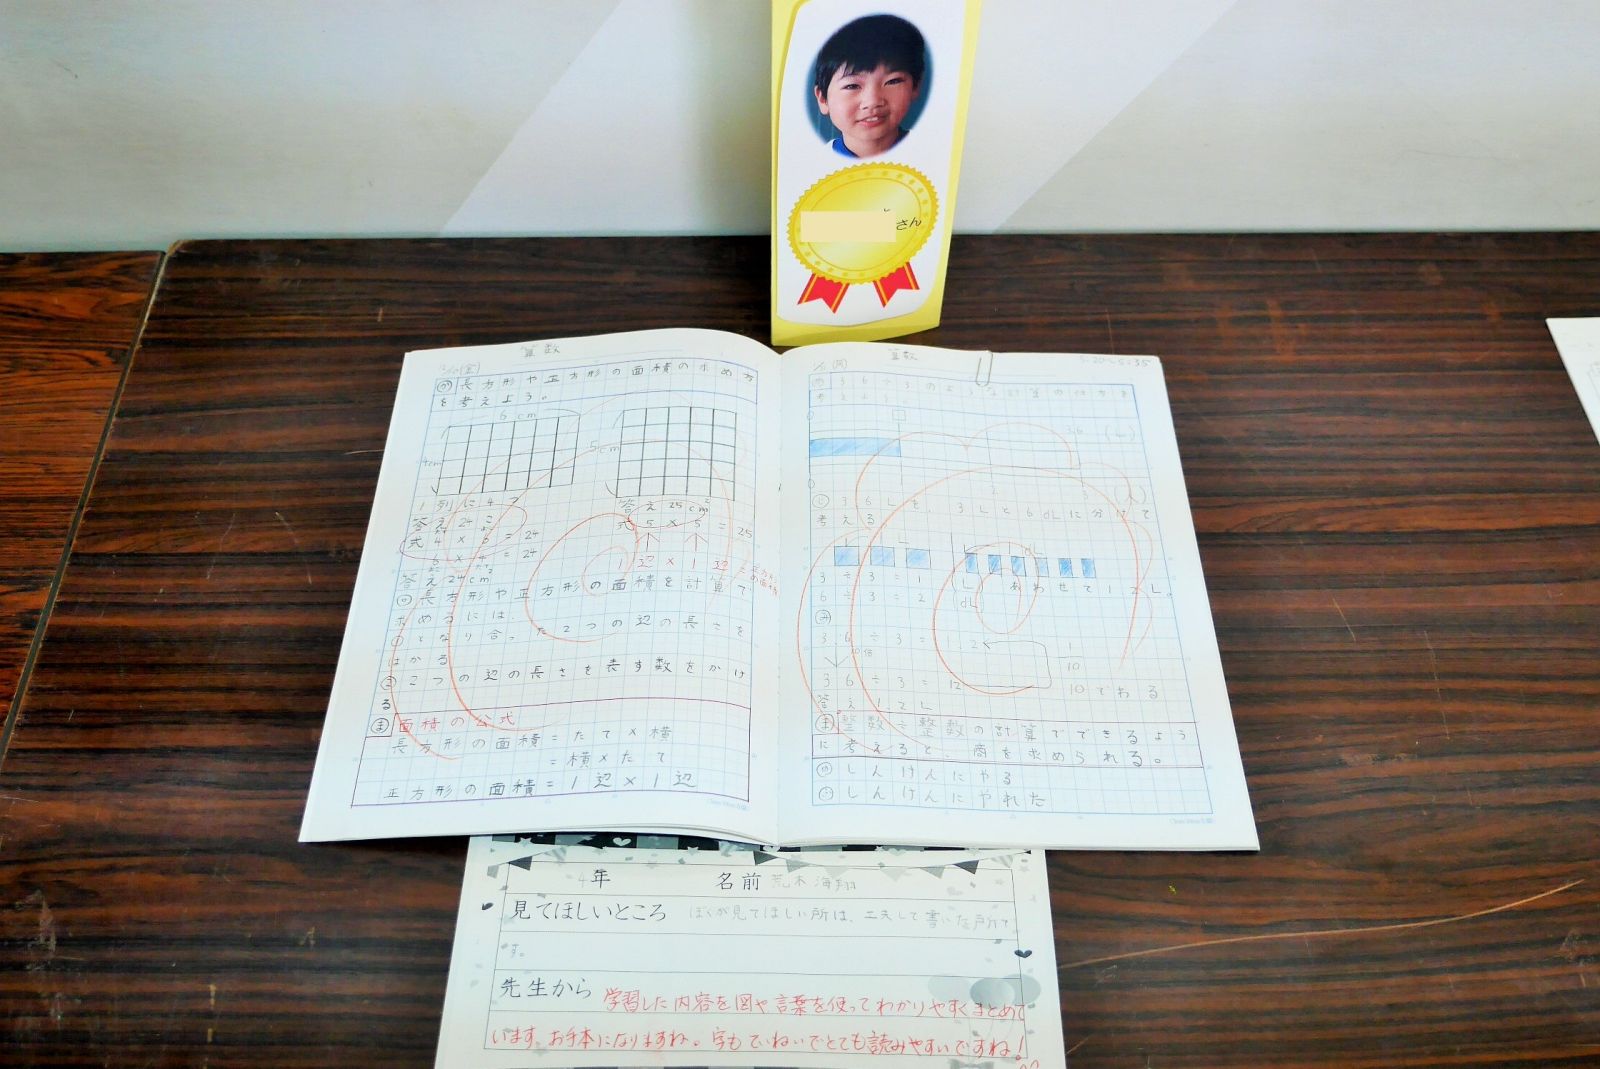 さん
算数
長方形や正方形の面積の求め方
を考えよう。
6cm
4cm
5cm
1列に4こ
答え24こ
式 4×6=24
6×4=24
答え24cm²
答え25cm²
式 5×5=25
1辺×1辺
長方形や正方形の面積を計算で
求めるには、
①となり合った2つの辺の長さを
はかる
②2つの辺の長さを表す数をかけ
る
ま 面積の公式
長方形の面積=たて×横
=横×たて
正方形の面積=1辺×1辺
算数
5:20~5:35
3.6÷3の
計算の仕方を
考えよう
0
3.6 (L)
0 1 2 3 (人)
3.6Lを、3Lと6dLに分けて
考える
3÷3=1 (L)
6÷3=2 (dL)
あわせて1.2L。
3.6÷3=1.2
10倍
1/10
36÷3=12
10でわる
答え 1.2L
ま 整数÷整数の計算でできるよう
に考えると、商を求められる。
しんけんにやる
しんけんにやれた
4年 名前 荒木海翔
見てほしいところ ぼくが見てほしい所は、工夫して書いた所で
す。
先生から 学習した内容を図や言葉を使ってわかりやすくまとめて
います。お手本になりますね。字もていねいでとても読みやすいですね!